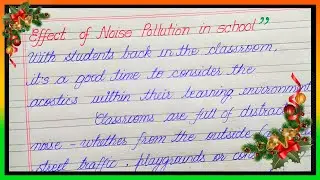 Effect of Noise Pollution in school”
With students back in the classroom,
it's a good time to consider the
acostics within their learning invironment
Classrooms are full of distract
noise – whether from the outside
street traffic, playgrounds or cons